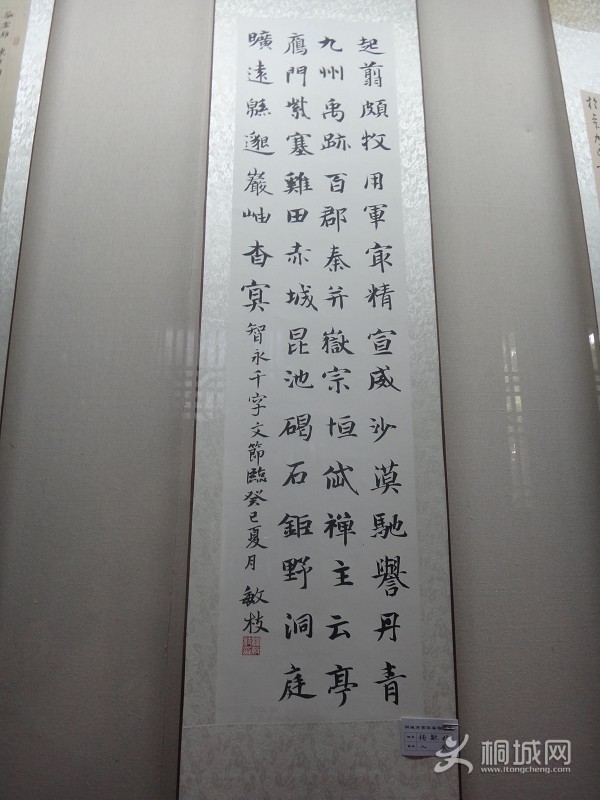 起翦頗牧用軍㝡精宣威沙漠馳譽丹青
九州禹跡百郡秦并嶽宗恒岱禪主云亭
鴈門紫塞雞田赤城昆池碣石鉅野洞庭
曠遠緜邈巖岫杳冥智永千字文節臨癸巳夏月 敏枝
桐城网
www.itongcheng.com